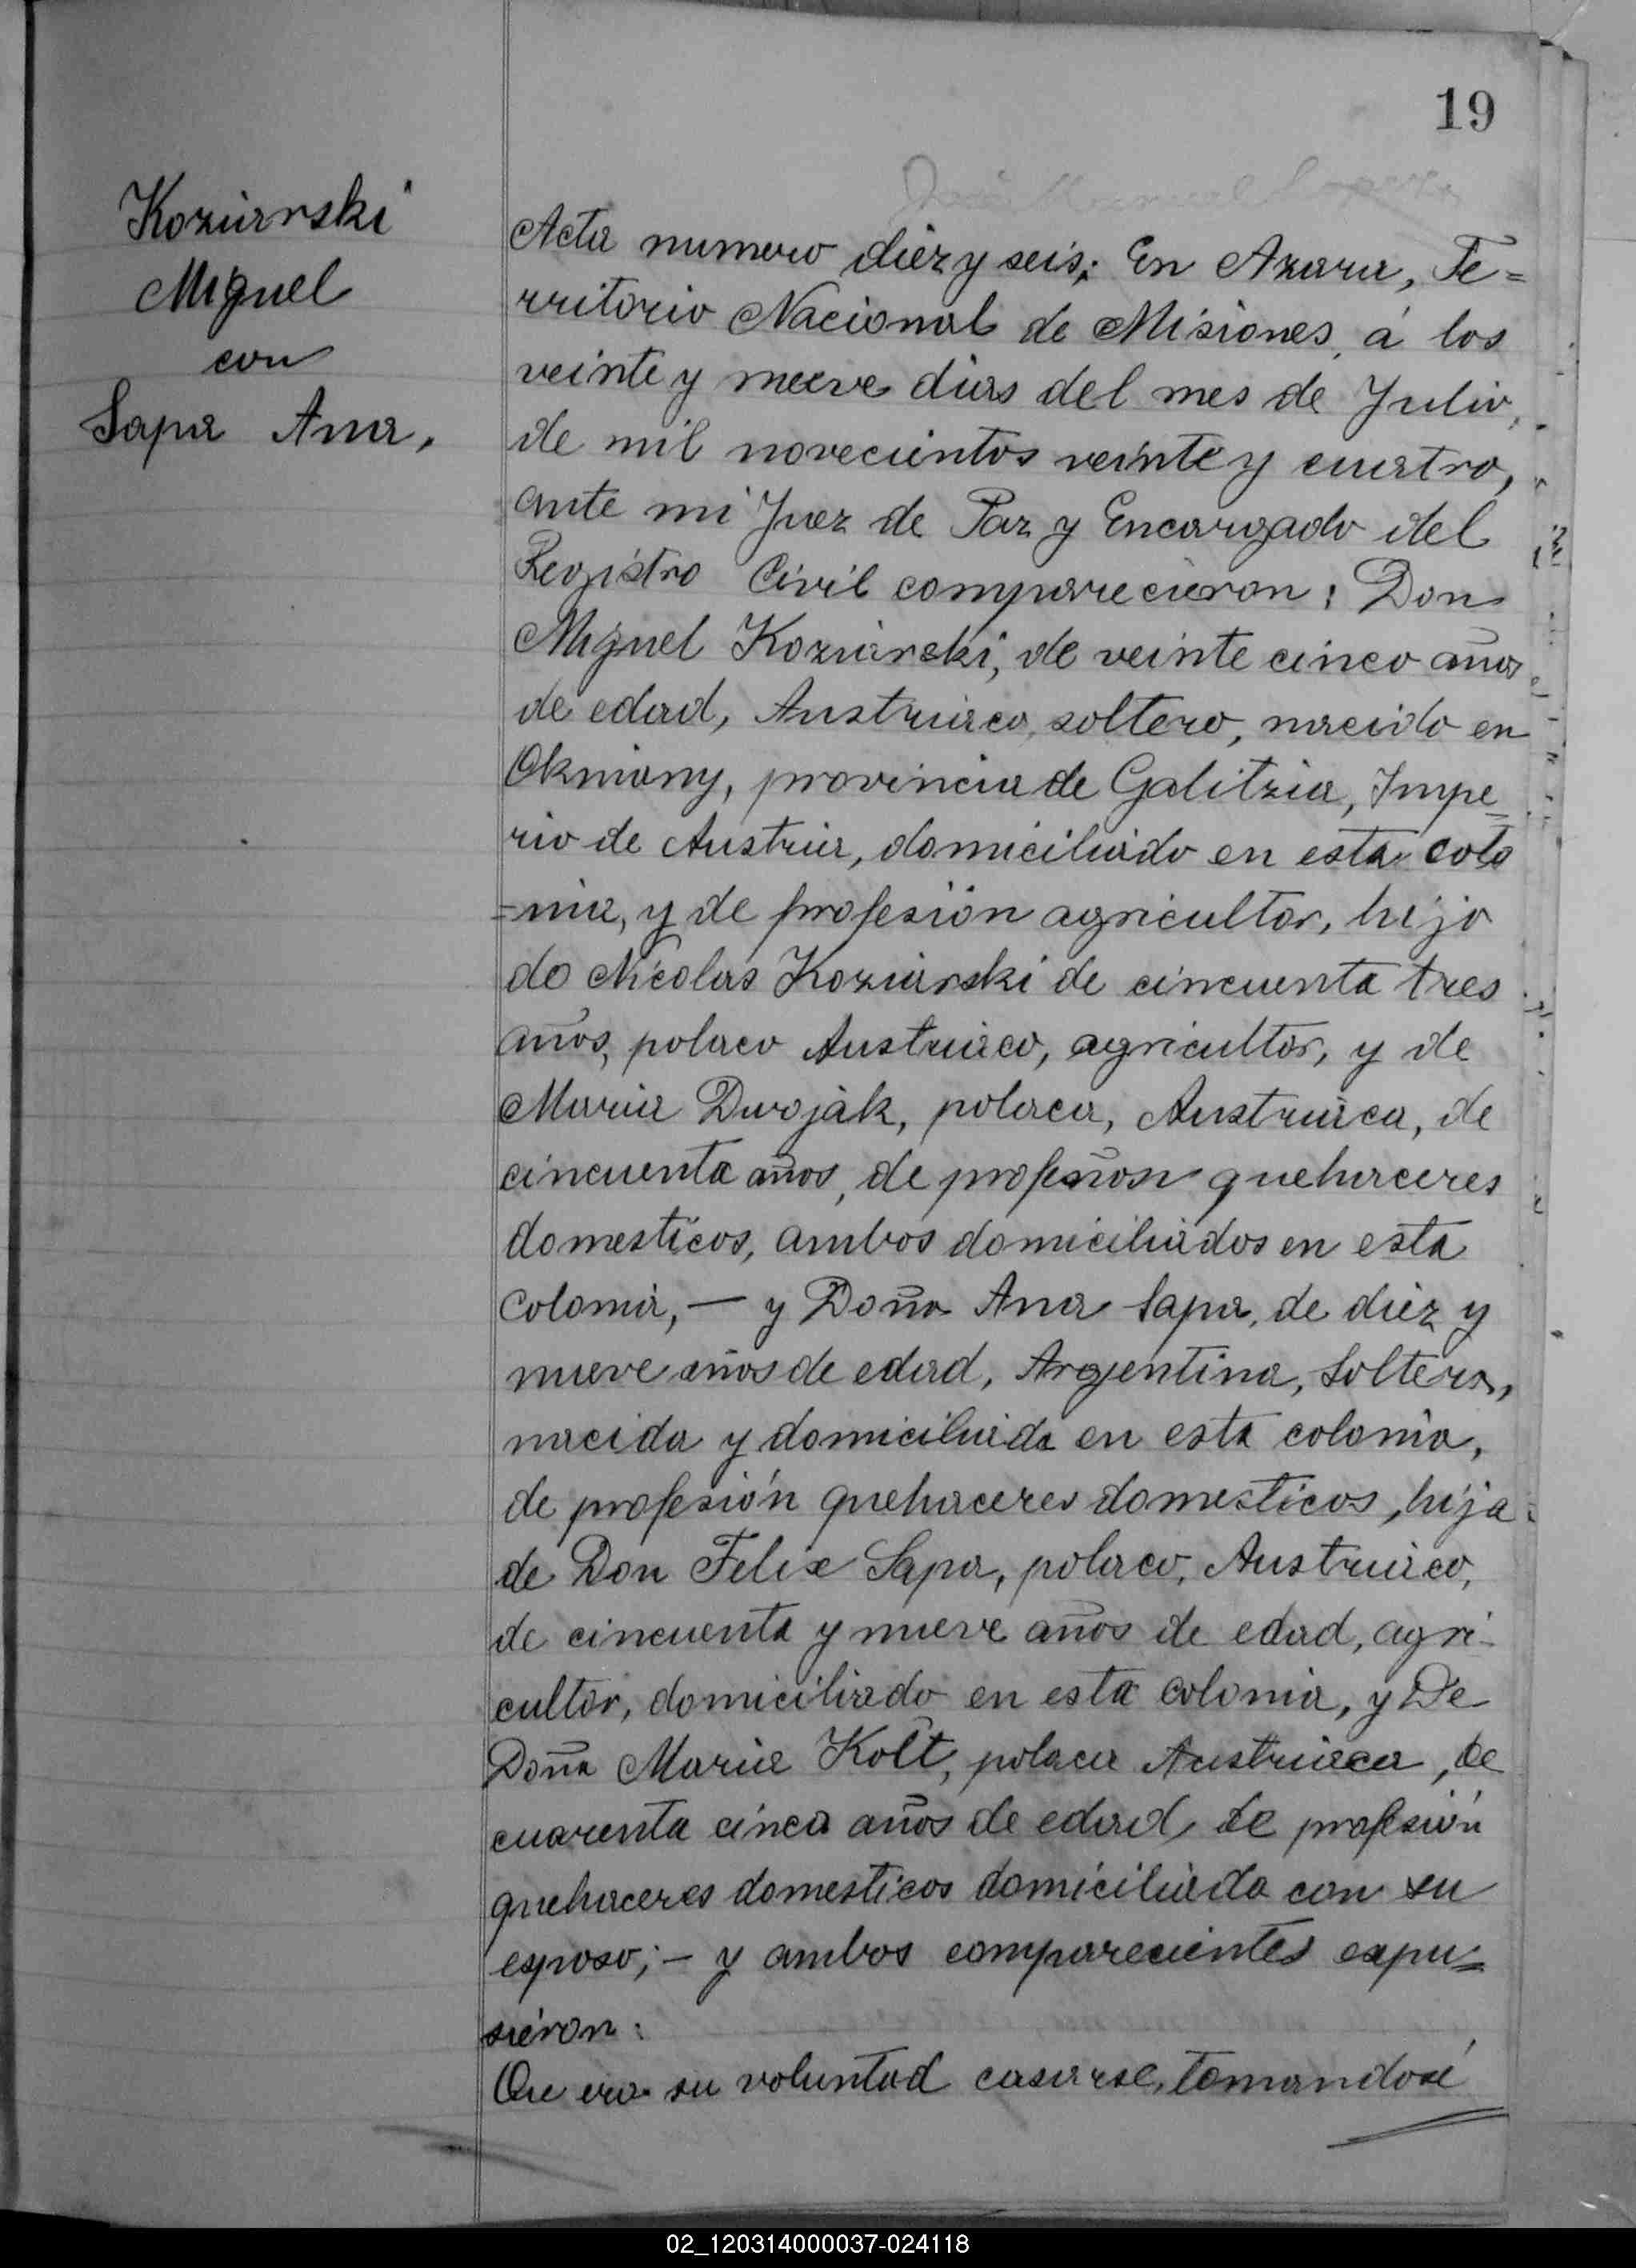 19
Koziarski
Miguel
con
Sapa Ana,
Acta numero diez y seis; En Azara, Te=
rritorio Nacional de Misiones, á los
veinte y nueve dias del mes de Julio,
de mil novecientos veinte y cuatro,
ante mi Juez de Paz y Encargado del
Registro Civil comparecieron: Don
Miguel Koziarski, de veinte cinco años
de edad, Austriaco, soltero, nacido en
Okniany, provincia de Galitzia, Impe=
rio de Austria, domiciliado en esta colo
=nia, y de profesión agricultor, hijo
de Nicolas Koziarski de cincuenta tres
años, polaco Austriaco, agricultor, y de
Maria Dwoják, polaca, Austriaca, de
cincuenta años, de profesion quehaceres
domesticos, ambos domiciliados en esta
Colonia, — y Doña Ana Sapa, de diez y
nueve años de edad, Argentina, Soltera,
nacida y domiciliada en esta colonia,
de profesión quehaceres domesticos, hija
de Don Felix Sapa, polaco, Austriaco,
de cincuenta y nueve años de edad, agri-
cultor, domiciliado en esta colonia, y De
Doña Maria Kott, polaca Austriaca, de
cuarenta cinco años de edad, de profesión
quehaceres domesticos domiciliada con su
esposo; — y ambos comparecientes expu=
sieron:
Que era su voluntad casarse, tomandosé
02_120314000037-024118